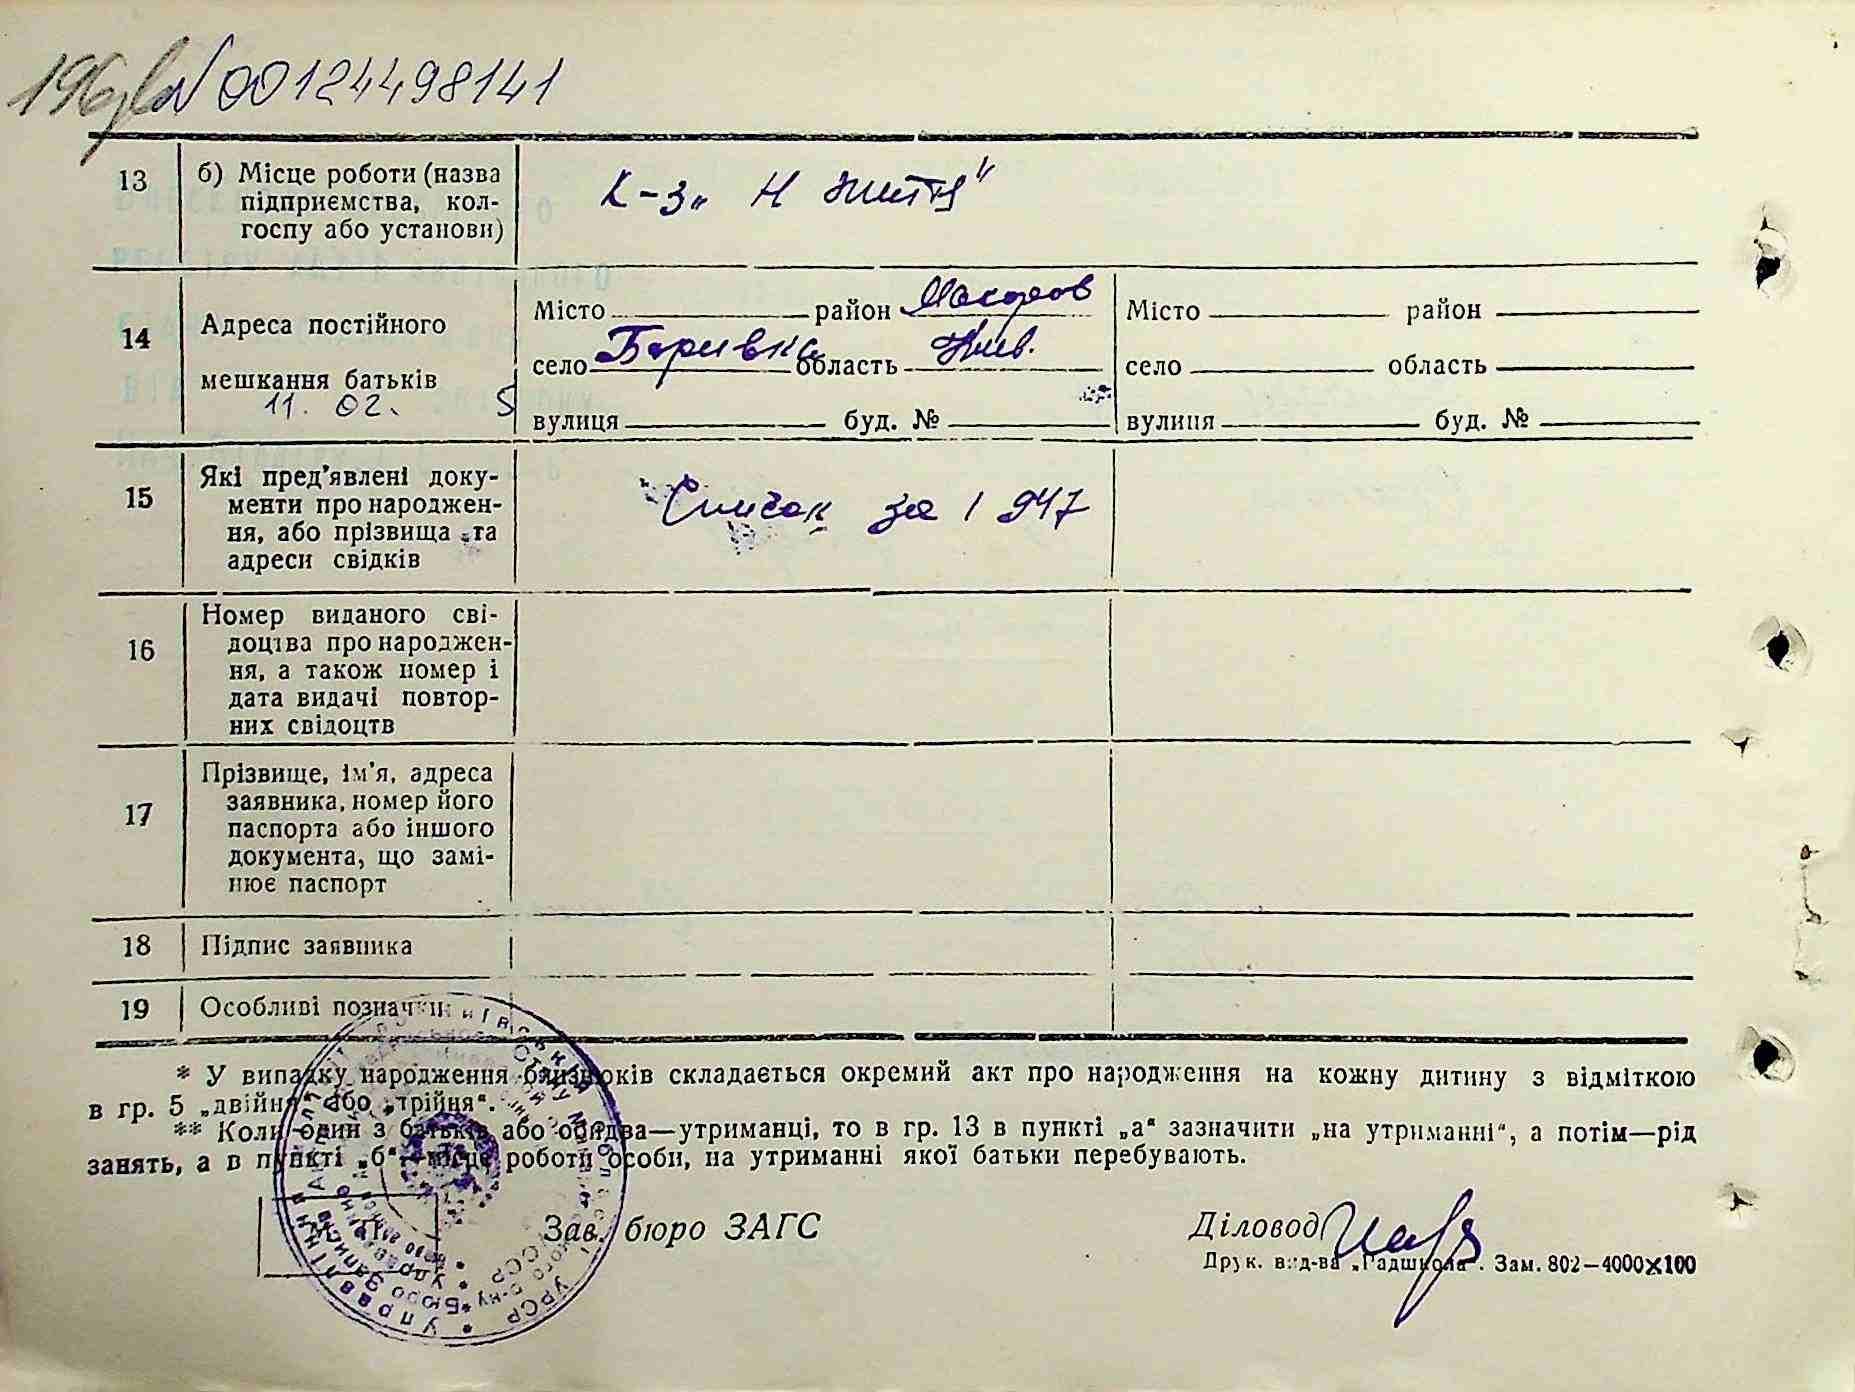 № 00124498141
13
б) Місце роботи (назва
підприємства, кол-
госпу або установи)
К-з „Н життя"
14
Адреса постійного
мешкання батьків
11. 02. 5
Місто район Макаров
село область Київ.
вулиця буд. №
Місто район
село область
вулиця буд. №
15
Які пред'явлені доку-
менти про народжен-
ня, або прізвища та
адреси свідків
Список за 1947
16
Номер виданого сві-
доцтва про народжен-
ня, а також номер і
дата видачі повтор-
них свідоцтв
17
Прізвище, ім'я, адреса
заявника, номер його
паспорта або іншого
документа, що замі-
нює паспорт
18
Підпис заявника
19
Особливі позначки
* У випадку народження близнюків складається окремий акт про народження на кожну дитину з відміткою
в гр. 5 „двійня" або „трійня".
** Коли один з батьків або обидва—утриманці, то в гр. 13 в пункті „а" зазначити „на утриманні", а потім—рід
занять, а в пункті „б"—місце роботи особи, на утриманні якої батьки перебувають.
Зав. бюро ЗАГС
Діловод
Друк. вид-ва „Радшкола". Зам. 802—4000×100